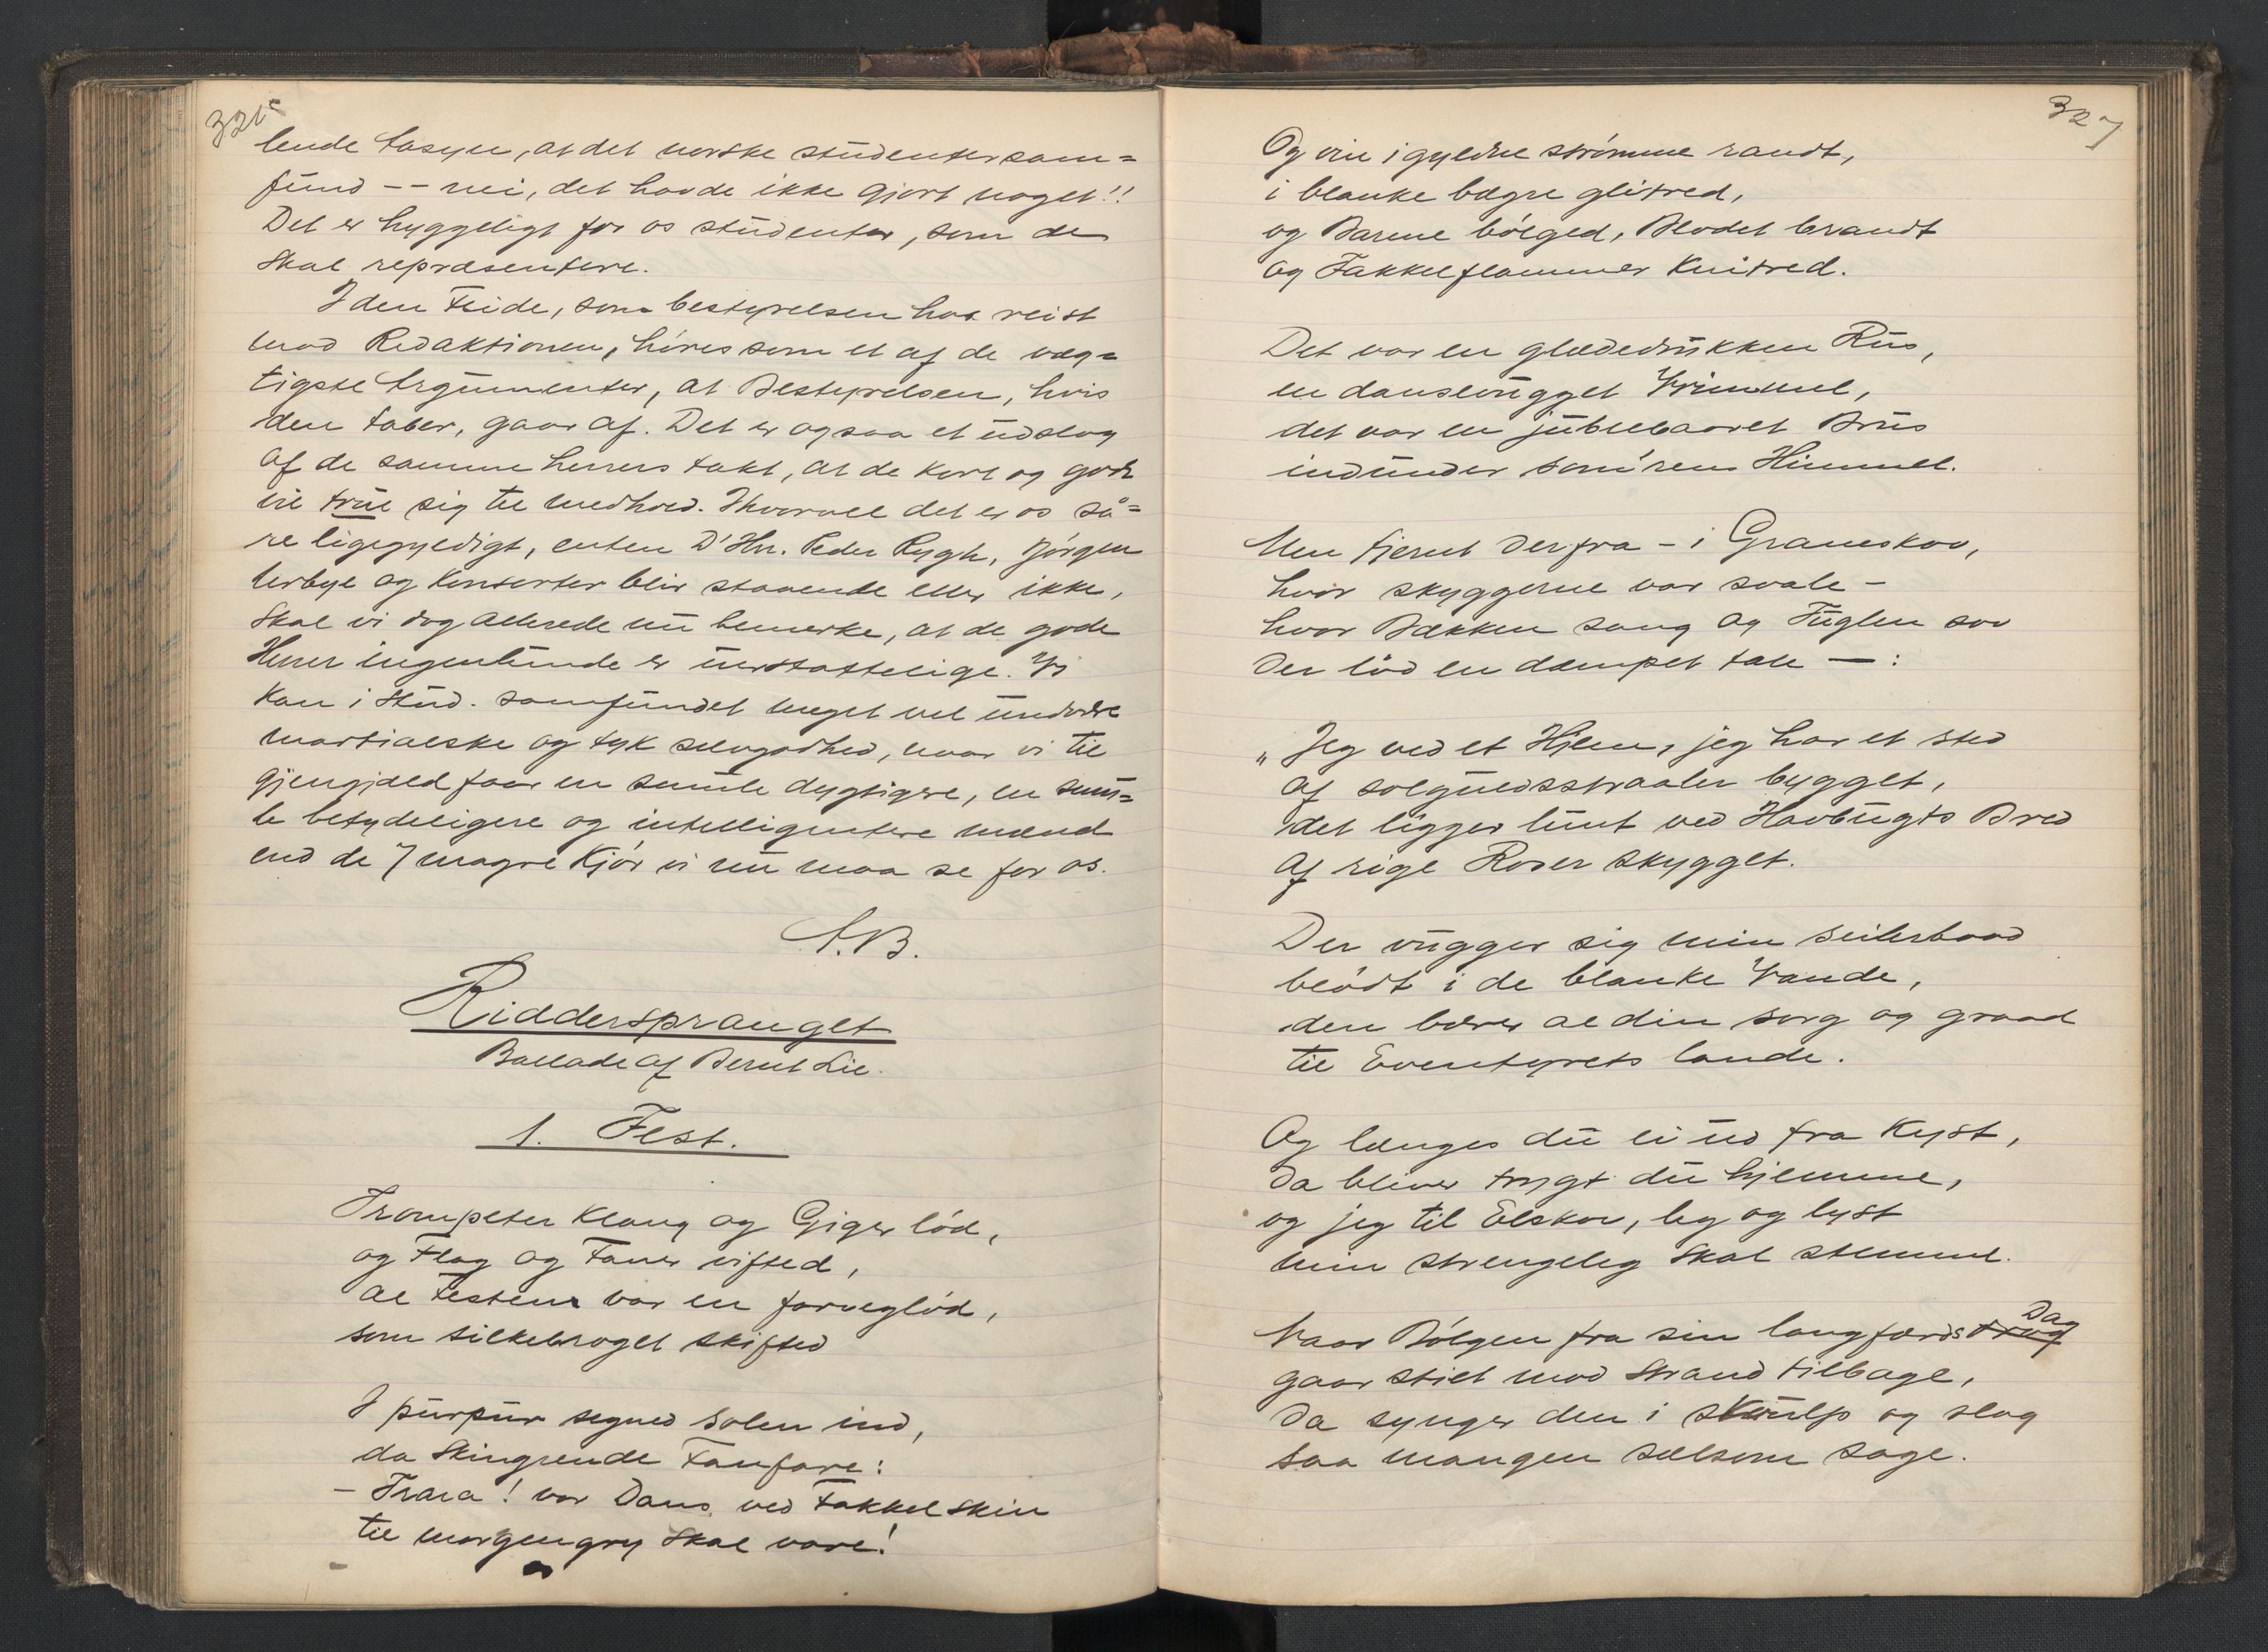 326
lende tasyn, at det norske studentersam=
fund -- nei, det havde ikke gjort noget!!
Det er hyggeligt for os studenter, som de
skal repræsentere.
I den Feide, som bestyrelsen har reist
mod Redaktionen, høres som et af de væg=
tigste Argumenter, at Bestyrelsen, hvis
den taber, gaar af. Det er ogsaa et udslag
af de samme herrers takt, at de kort og godt
vil true sig til medhold. Ihvorvel det er os så=
re ligegyldigt, enten D'Hrr. Peder Rygh, Jørgen
Herbye og Konsorter blir staaende eller ikke,
skal vi dog allerede nu bemerke, at de gode
Herrer ingenlunde er uerstattelige. Vi
kan i Stud. samfundet meget vel undvære
martialske og tyk selvgodhed, naar vi til
gjengjæld faar en smule dygtigere, en smu=
le betydeligere og intelligentere mænd
end de 7 magre Kjør vi nu maa se for os.
A.B.
Ridderspranget
Ballade af Bernt Lie.
1. Fest.
Trompeter klang og Giger lød,
og Flag og Faner vifted,
al Festen var en farveglød,
som silkebroget skifted
I purpur segned solen ind,
da skingrende Fanfare:
- Trara! vor Dans ved Fakkelskin
til morgengry skal vare!
327
Og vin i gyldne strømme randt,
i blanke bægre glitred,
og Barme bølged, Blodet brandt
og Fakkelflammer knitred.
Det var en glædedrukken Rus,
en dansevugget Vrimmel,
det var en jubelbaaret Brus
indunder som'rens Himmel.
Men fjernt derfra - i Graneskov,
hvor skyggerne var svale -
hvor Bækken sang og Fuglen sov
der lød en dæmpet tale —:
„Jeg ved et Hjem, jeg har et sted
af solguldsstraaler bygget,
det ligger lunt ved Havbugts Bred
af rige Roser skygget.
Der vugger sig min seilerbaad
blødt i de blanke Vande,
den bærer al din sorg og graad
til Eventyrets lande.
Og længes du ei ud fra Kyst,
da bliver trygt du hjemme,
og jeg til Elskov, leg og lyst
min strengeleg skal stemme.
Naar Bølgen fra sin langfærds drag Dag
gaar stilt mod Strand tilbage,
da synger den i skulp og slag
saa mangen sælsom sage.